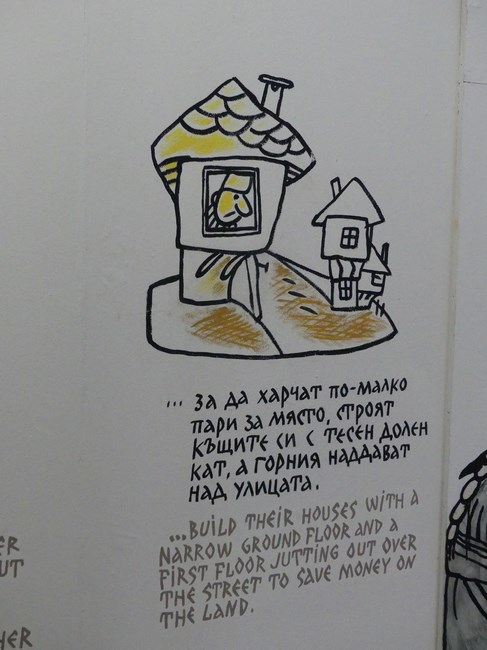 ... за да харчат по-малко
пари за място, строят
къщите си с тесен долен
кат, а горния наддават
над улицата.
...BUILD THEIR HOUSES WITH A
NARROW GROUND FLOOR AND A
FIRST FLOOR JUTTING OUT OVER
THE STREET TO SAVE MONEY ON
THE LAND.